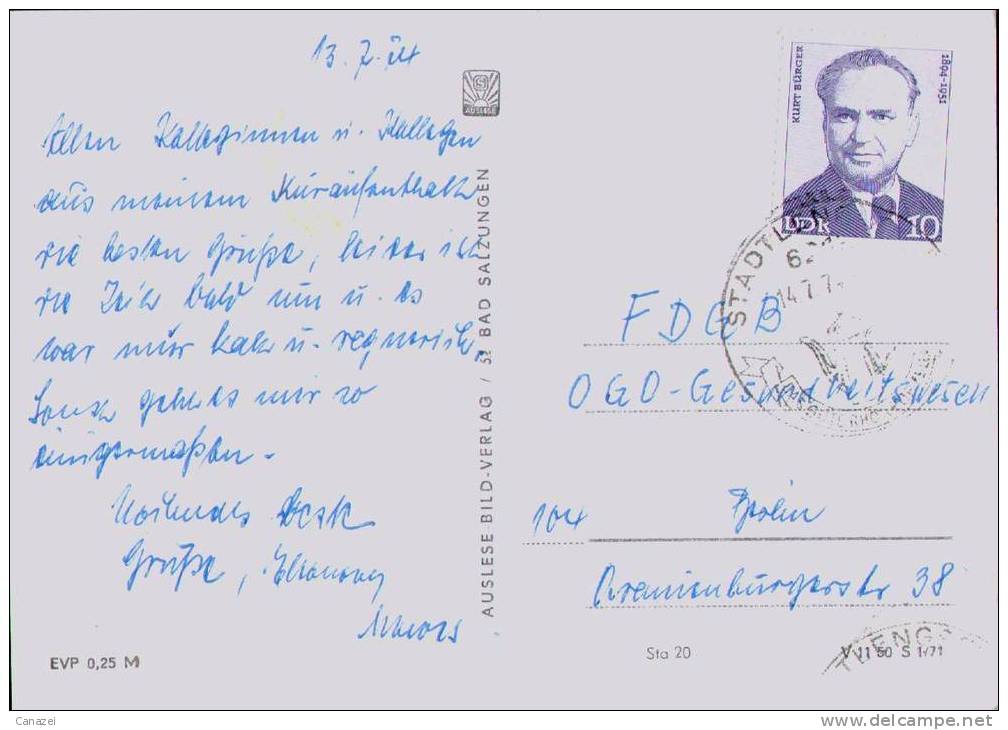 13. 7. 74
Allen Kolleginnen u. Kollegen
aus meinem Kuraufenthalt
die besten Grüße, leider ist
die Zeit bald um u. es
war nur kalt u. regnerisch.
Sonst geht es mir so
einigermaßen.
Nochmals beste
Grüße,
EVP 0,25 M
AUSLESE
AUSLESE BILD-VERLAG / SL BAD SALZUNGEN
KURT BÜRGER
1894-1951
DDR
10
STADTL
14.7.7
FDGB
OGO-Gesundheitswesen
104 Berlin
Oranienburgerstr 38
Sta 20
V 11 50 S 1/71
THENG
Canazei
www.delcampe.net